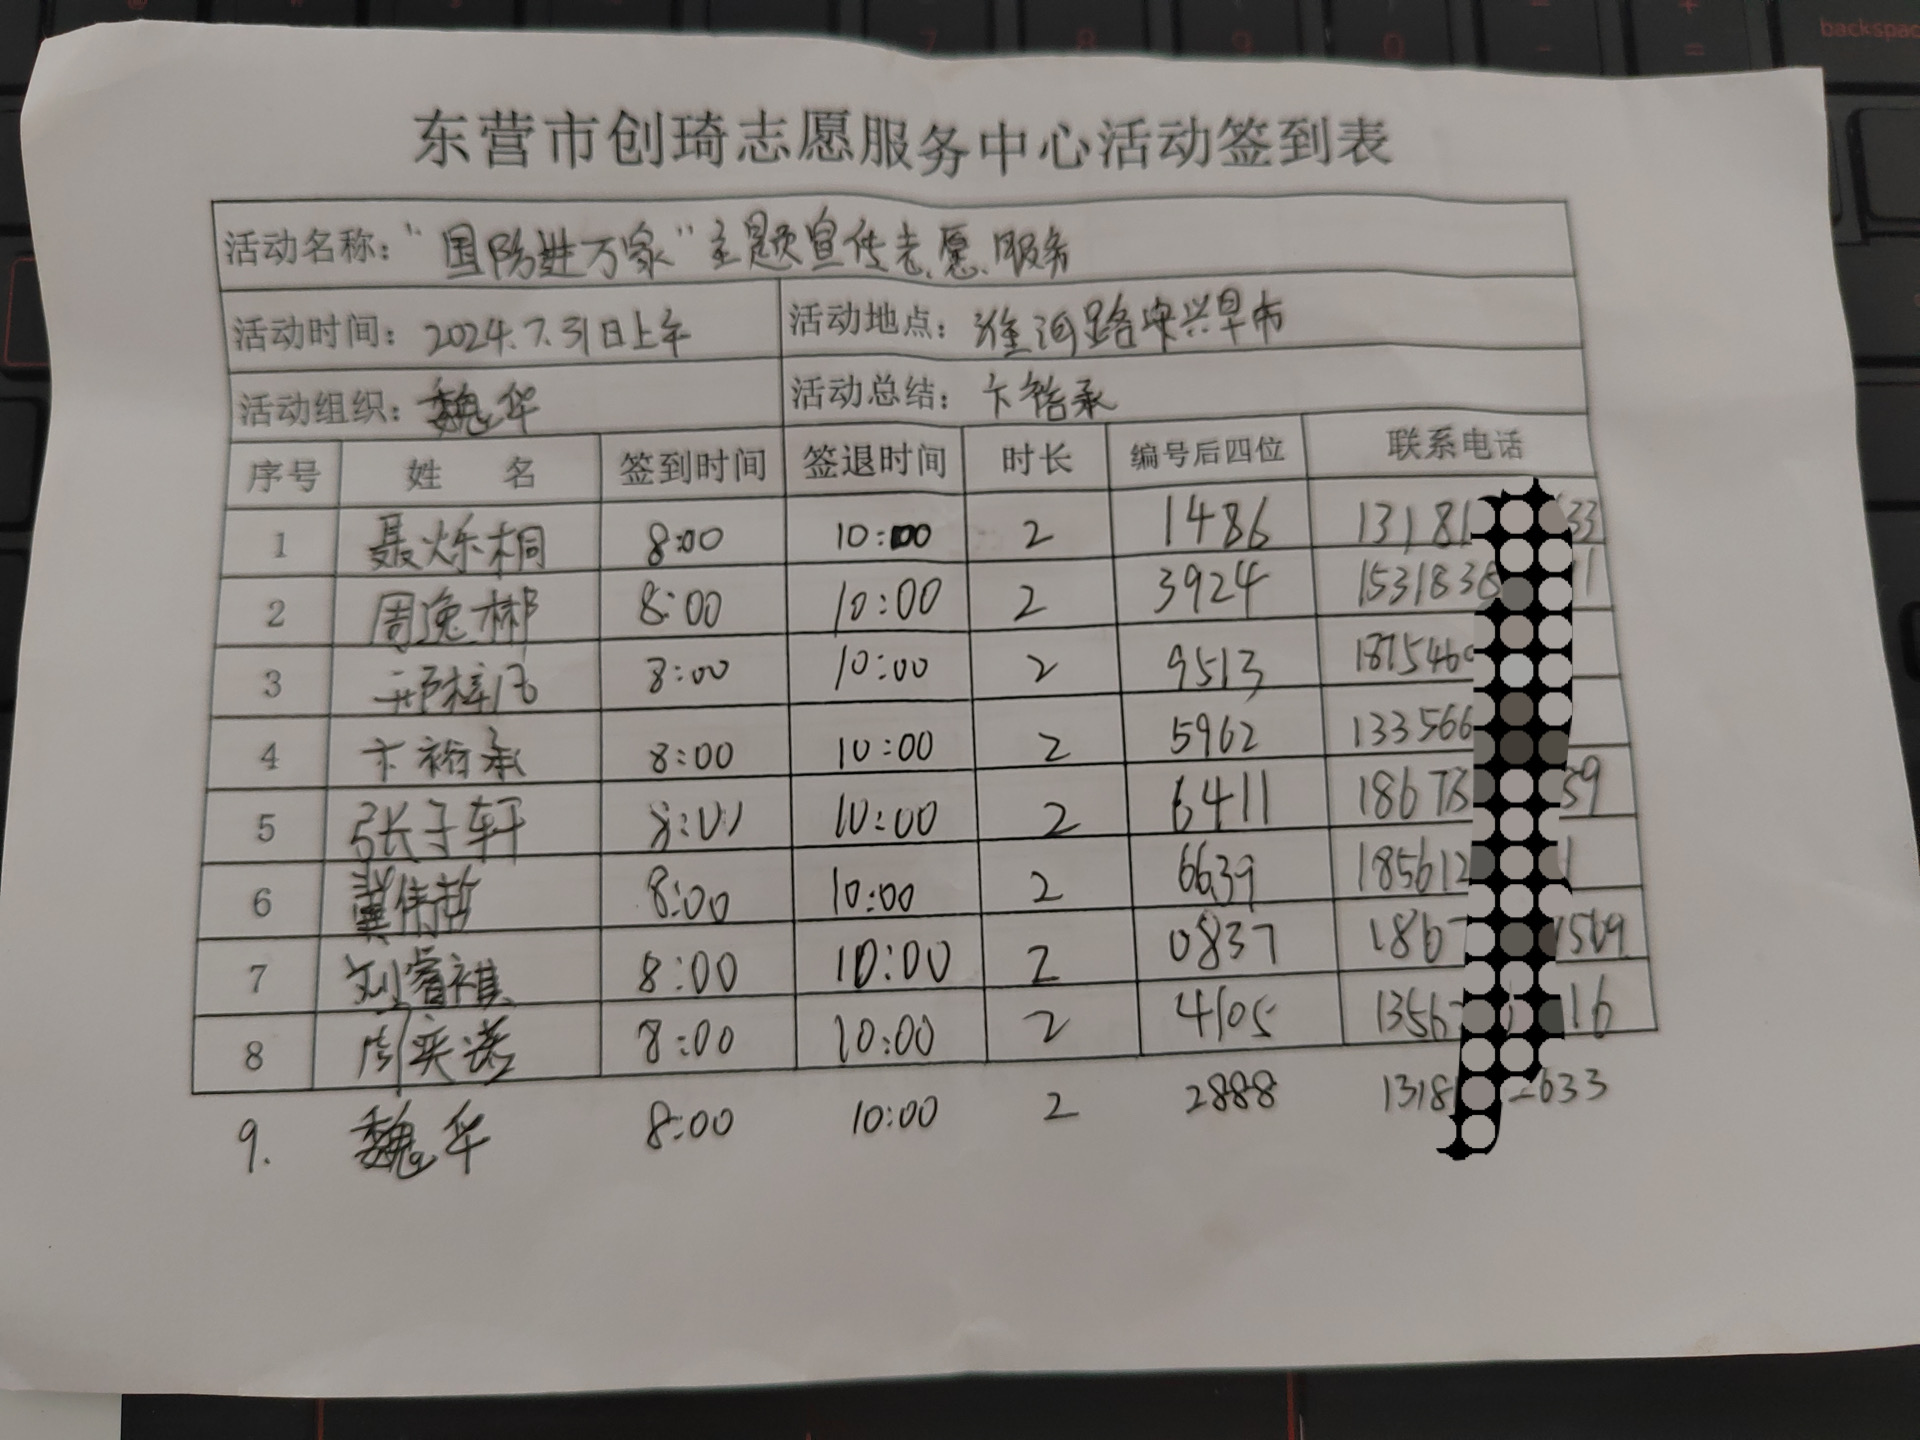 东营市创琦志愿服务中心活动签到表
活动名称：“国防进万家”主题宣传志愿服务
活动时间：2024.7.31日上午 活动地点：淮河路 兴早市
活动组织：魏华 活动总结：卞裕承
序号 姓 名 签到时间 签退时间 时长 编号后四位 联系电话
1 聂烁桐 8:00 10:00 2 1486 13181 33
2 周逸彬 8:00 10:00 2 3924 1531838 1
3 邢梓 8:00 10:00 2 9513 187546
4 卞裕承 8:00 10:00 2 5962 133566
5 张子轩 8:00 10:00 2 6411 18673 59
6 冀伟哲 8:00 10:00 2 6639 185612 1
7 刘睿祺 8:00 10:00 2 0837 1867 1569
8 周奕诺 8:00 10:00 2 4105 1356 16
9. 魏华 8:00 10:00 2 2888 1318 2633
backspac